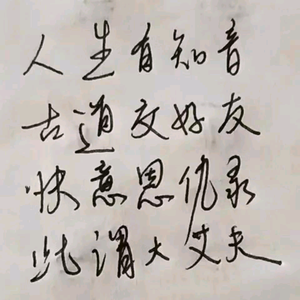 人生有知音
古道交好友
快意恩仇录
此谓大丈夫